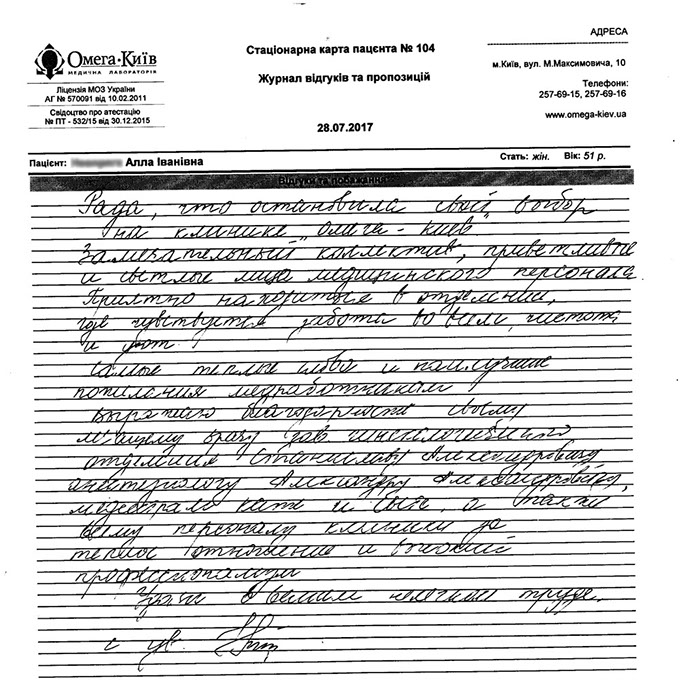 Омега·Київ
МЕДИЧНА ЛАБОРАТОРІЯ
Ліцензія МОЗ України
АГ № 570091 від 10.02.2011
Свідоцтво про атестацію
№ ПТ - 532/15 від 30.12.2015
Стаціонарна карта пацєнта № 104
Журнал відгуків та пропозицій
28.07.2017
АДРЕСА
м.Київ, вул. М.Максимовича, 10
Телефони:
257-69-15, 257-69-16
www.omega-kiev.ua
Пацієнт: Алла Іванівна Стать: жін. Вік: 51 р.
Відгуки та побажання
Рада, что остановила свой выбор
на клинике "Омега-Киев"
Замечательный коллектив, приветливые
и светлые лица медицинского персонала.
Приятно находиться в отделении,
где чувствуется забота во всем, чистота
и уют.
Самые теплые слова и наилучшие
пожелания медработникам
Выражаю благодарность своему
лечащему врачу зав. гинекологического
отделения Станиславу Александровичу
анестезиологу Александру Александровичу,
медсестрам Кате и Свете, а также
всему персоналу клиники за
теплое отношение и высокий
профессионализм
Удачи в вашем нелегком труде.
с ув.